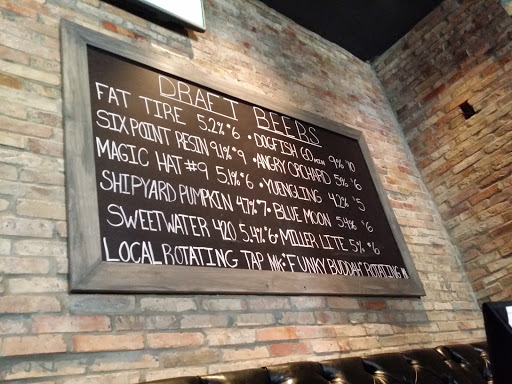 DRAFT BEERS
FAT TIRE 5.2% $6 • DOGFISH 60 MIN 9% $10
SIXPOINT RESIN 9.1% $9 • ANGRY ORCHARD 5% $6
MAGIC HAT #9 5.1% $6 • YUENGLING 4.2% $5
SHIPYARD PUMPKIN 4.7% $7 • BLUE MOON 5.4% $6
SWEETWATER 420 5.4% $6 • MILLER LITE 5% $6
LOCAL ROTATING TAP MK: FUNKY BUDDAH ROTATING